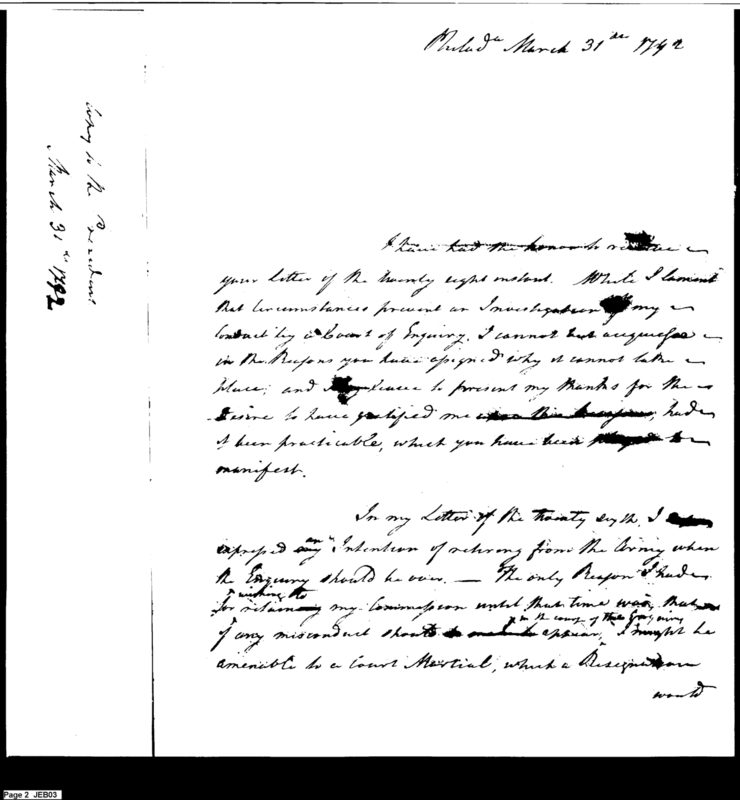 Philada March 31st 1792
Copy to the President
March 31st 1792
I have had the honor to receive
your Letter of the twenty eight instant. While I lament
that Circumstances prevent an Investigation of my
Conduct by a Court of Enquiry, I cannot but acquiesce
in the Reasons you have assigned why it cannot take
place; and beg leave to present my thanks for the
Desire to have gratified me, had
it been practicable, which you have been pleased to
manifest.
In my Letter of the twenty sixth, I
expressed an Intention of retiring from the Army when
the Enquiry should be over. — The only Reason I had
wishing to
for retain my Commission until that time was, that
in the course of the Enquiry
if any misconduct should appear, I might be
amenable to a Court Martial, which a Resignation
would
Page 2 JEB03